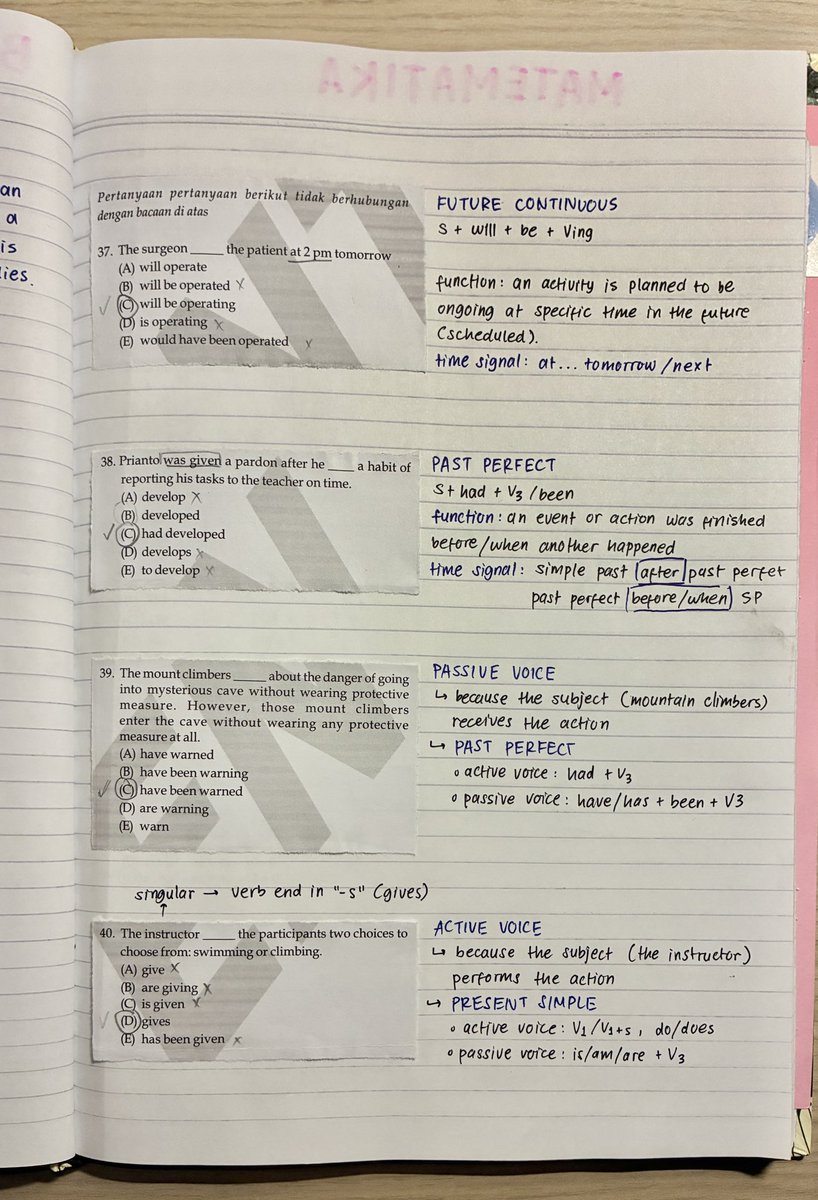 MATEMATIKA
an
a
is
lies.
Pertanyaan pertanyaan berikut tidak berhubungan
dengan bacaan di atas
37. The surgeon _____ the patient at 2 pm tomorrow
(A) will operate
(B) will be operated X
(C) will be operating
(D) is operating X
(E) would have been operated X
FUTURE CONTINUOUS
S + will + be + Ving
function: an activity is planned to be
ongoing at specific time in the future
(scheduled).
time signal: at... tomorrow/next
38. Prianto was given a pardon after he ____ a habit of
reporting his tasks to the teacher on time.
(A) develop X
(B) developed
(C) had developed
(D) develops X
(E) to develop X
PAST PERFECT
S + had + V3/been
function: an event or action was finished
before/when another happened
time signal: simple past after past perfet
past perfect before/when SP
39. The mount climbers _____ about the danger of going
into mysterious cave without wearing protective
measure. However, those mount climbers
enter the cave without wearing any protective
measure at all.
(A) have warned
(B) have been warning
(C) have been warned
(D) are warning
(E) warn
PASSIVE VOICE
↳ because the subject (mountain climbers)
receives the action
↳ PAST PERFECT
• active voice: had + V3
• passive voice: have/has + been + V3
singular → verb end in "-s" (gives)
40. The instructor _____ the participants two choices to
choose from: swimming or climbing.
(A) give X
(B) are giving X
(C) is given X
(D) gives
(E) has been given X
ACTIVE VOICE
↳ because the subject (the instructor)
performs the action
↳ PRESENT SIMPLE
• active voice: V1/V1+s, do/does
• passive voice: is/am/are + V3